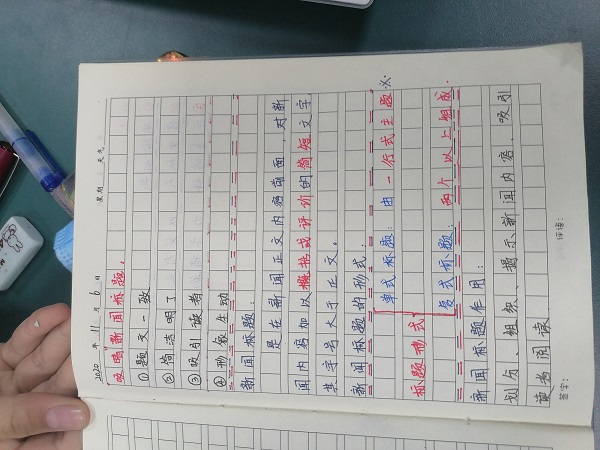 2020 年 11 月 6 日 星期 天气
吸睛新闻标题。
①题文一致
②简洁明了
③吸引读者
④形象生动
新闻标题:
是在新闻正文内容前面,对新
闻内容加以概括或评价的简短文字
其字号大于正文。
新闻标题的形式:
单式标题:由一行式主题
标题形式
复式标题、两个以上组成.
新闻标题作用:
划分、组织、揭示新闻内容、吸引
读者阅读
签字: 评语: